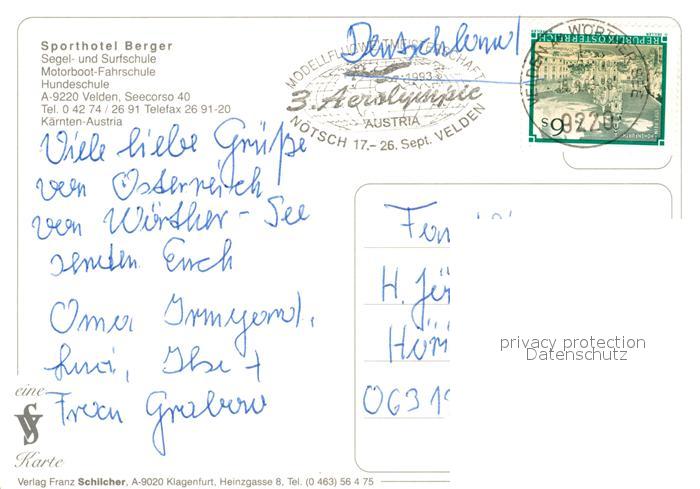 Sporthotel Berger
Segel- und Surfschule
Motorboot-Fahrschule
Hundeschule
A-9220 Velden, Seecorso 40
Tel. 0 42 74 / 26 91 Telefax 26 91-20
Kärnten-Austria
Deutschland
MODELLFLUGWELTMEISTERSCHAFT
1993
3. Aerolympic
AUSTRIA
NÖTSCH 17.- 26. Sept. VELDEN
VELDEN A. WÖRTHERSEE
9220
REPUBLIK ÖSTERREICH
6s
Viele liebe Grüße
von Österreich
vom Wörther-See
senden Euch
Oma Irmgard,
Ilse +
Frau Grabow
Fam
H. Jö
Hör
063 19
privacy protection
Datenschutz
eine
VS
Karte
Verlag Franz Schilcher, A-9020 Klagenfurt, Heinzgasse 8, Tel. (0 463) 56 4 75